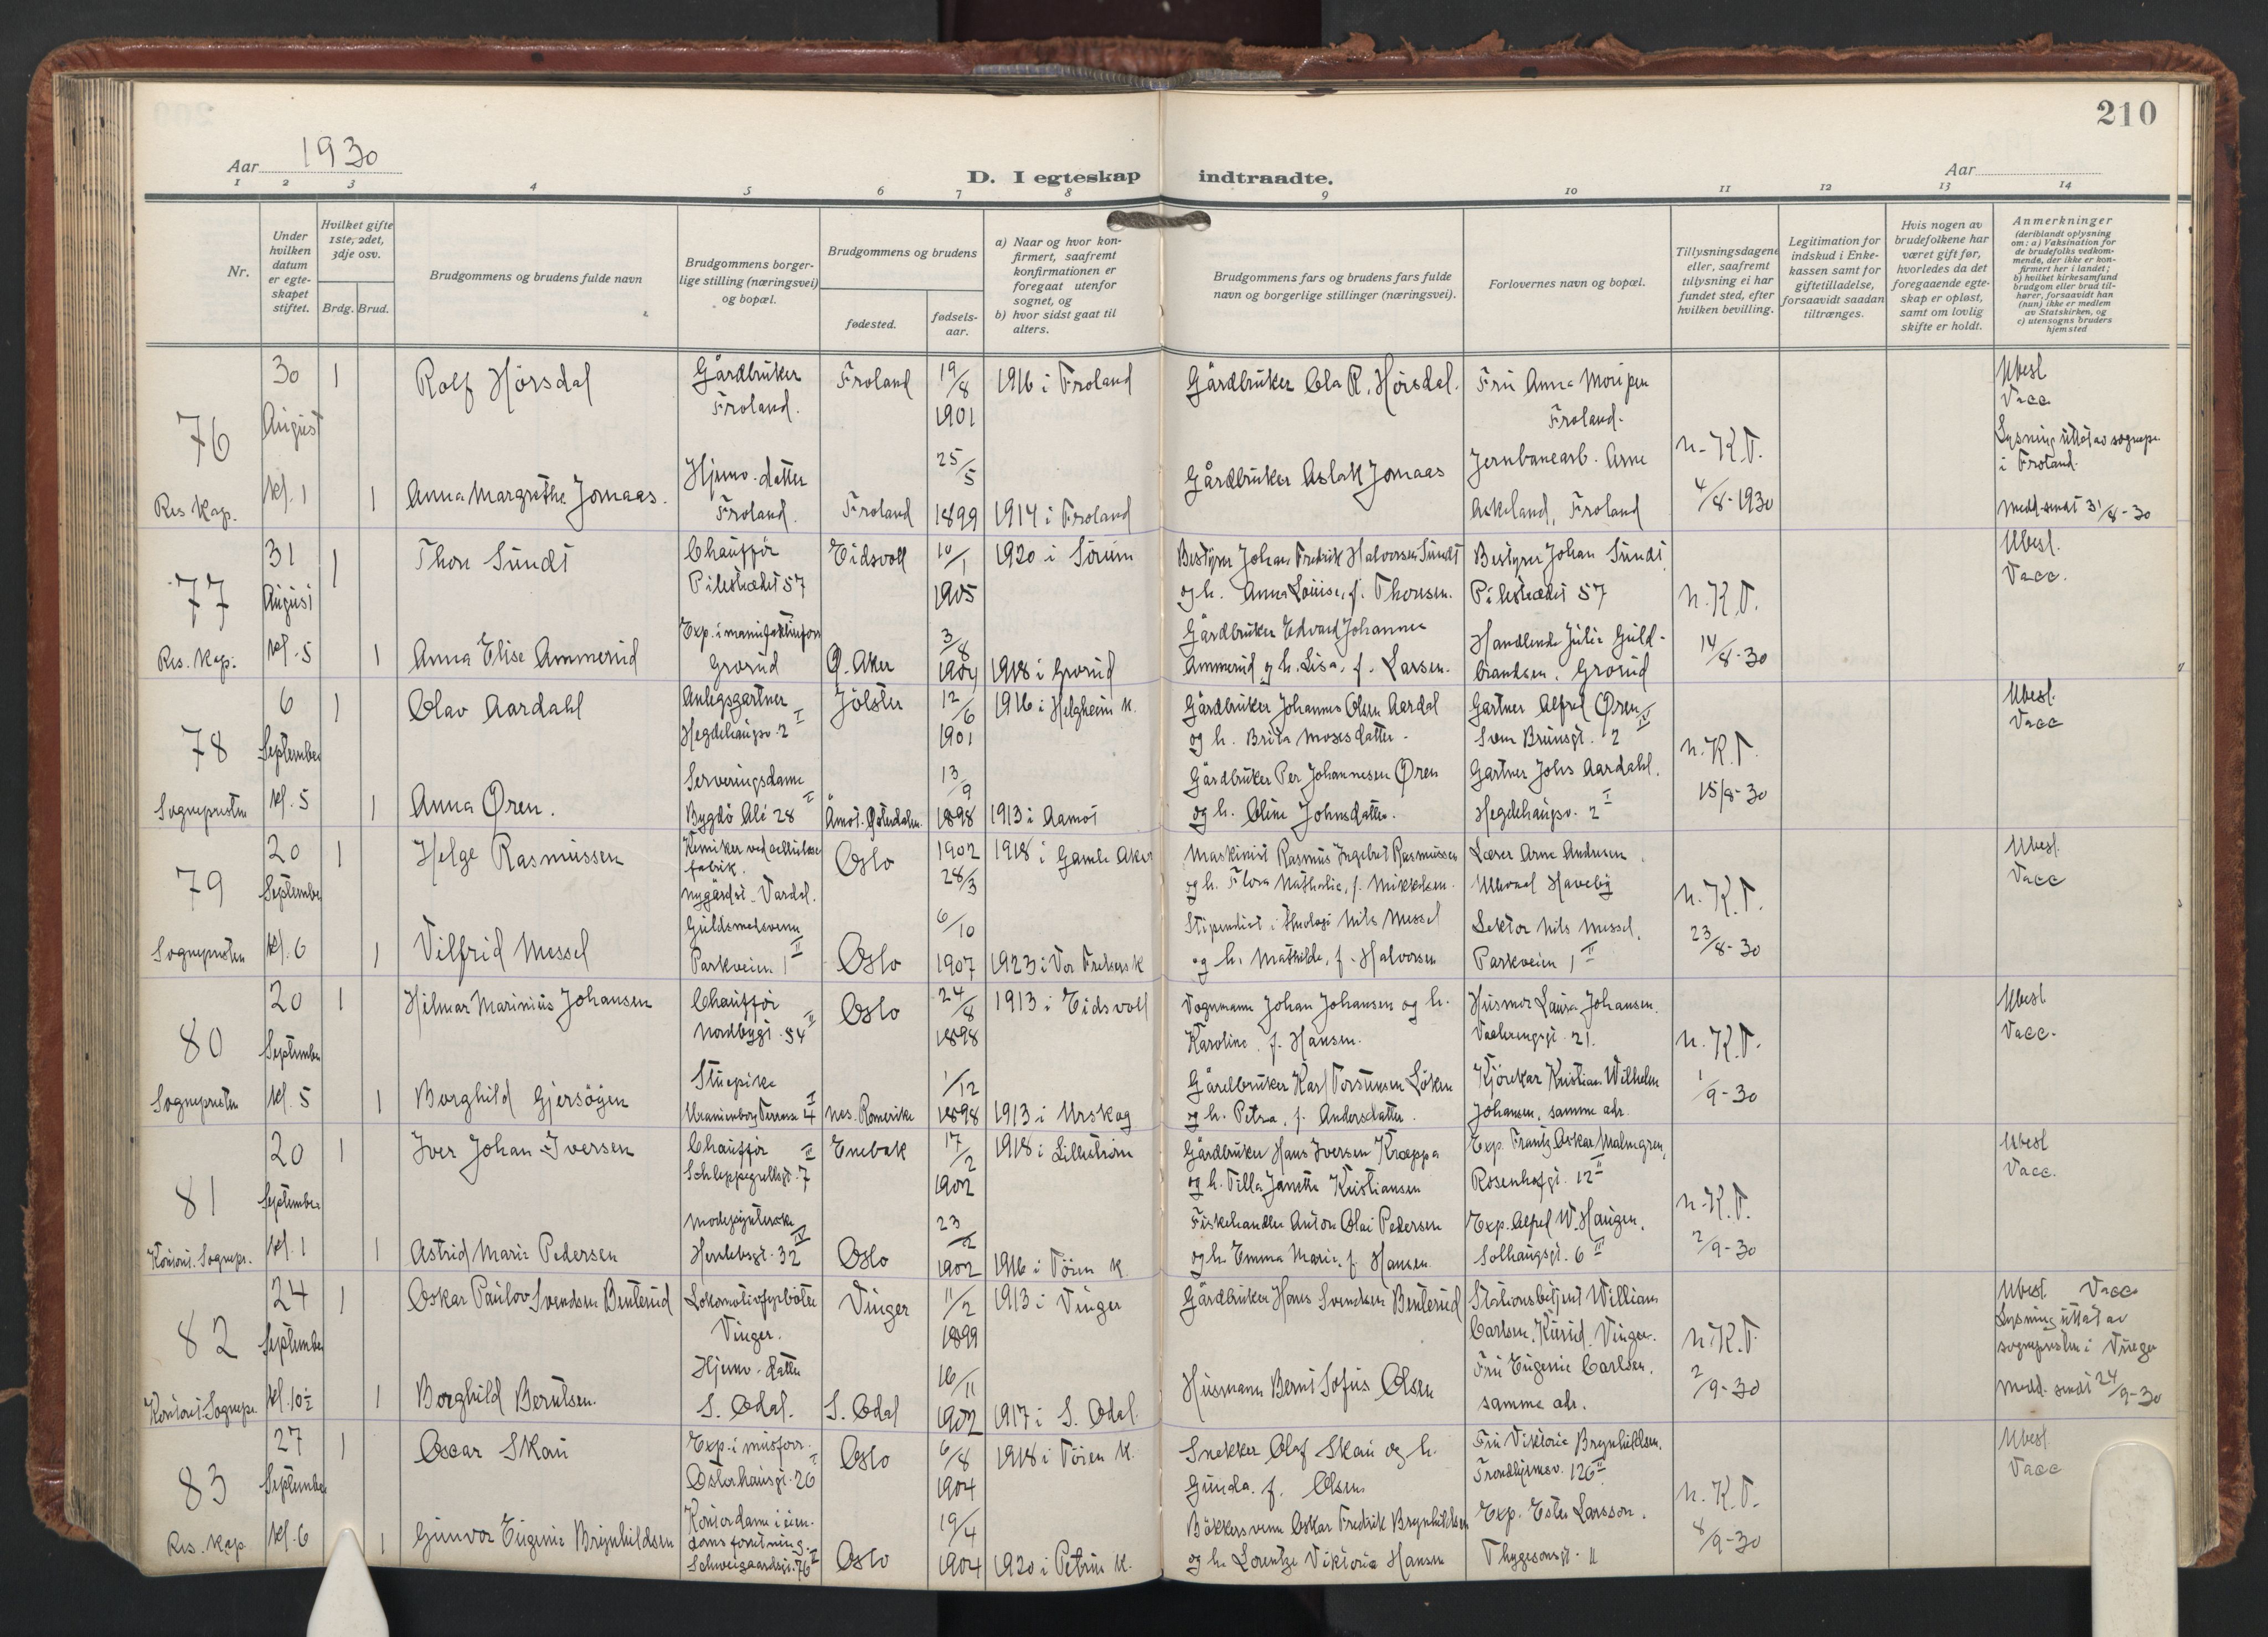 210
Aar 1930
D. I egteskap indtraadte.
Aar
1 2 3 4 5 6 7 8 9 10 11 12 13 14
Nr.
Under hvilken datum er egteskapet stiftet.
Hvilket gifte 1ste, 2det, 3dje osv.
Brdg. Brud.
Brudgommens og brudens fulde navn
Brudgommens borgerlige stilling (næringsvei) og bopæl.
Brudgommens og brudens
fødested.
fødselsaar.
a) Naar og hvor konfirmert, saafremt konfirmationen er foregaat utenfor sognet, og
b) hvor sidst gaat til alters.
Brudgommens fars og brudens fars fulde navn og borgerlige stillinger (næringsvei).
Forlovernes navn og bopæl.
Tillysningsdagene eller, saafremt tillysning ei har fundet sted, efter hvilken bevilling.
Legitimation for indskud i Enkekassen samt for giftetilladelse, forsaavidt saadan tiltrænges.
Hvis nogen av brudefolkene har været gift før, hvorledes da det foregaaende egteskap er opløst, samt om lovlig skifte er holdt.
Anmerkninger (deriblandt oplysning om: a) Vaksination for de brudefolks vedkommende, der ikke er konfirmert her i landet; b) hvilket kirkesamfund brudgom eller brud tilhører, forsaavidt han (hun) ikke er medlem av Statskirken, og c) utensogns bruders hjemsted
76 30 August kl. 1 Res. Kap.
1 Rolf Hörsdal Gårdbruker Froland. Froland 19/8 1901 1916 i Froland Gårdbruker Ola R. Hörsdal. Fru Anna Froland.
1 Anna Margrethe Jomaas. Hjemv. datter Froland. Froland 25/5 1899 1914 i Froland Gårdbruker Aslak Jomaas Jernbanearb. Arne Askeland, Froland
n. K.T. 4/8-1930
Ubesl. Vacc. Lysning uttat av sognepr. i Froland. Medd. sendt 31/8-30
77 31 August kl. 5 Res. Kap.
1 Thore Sundt Chaufför Pilestrædet 57 Eidsvoll 10/1 1905 1920 i Sörum Bestyrer Johan Fredrik Halvorsen Sundt og h. Anna Louise, f. Thoresen. Bestyrer Johan Sundt, Pilestrædet 57
1 Anna Elise Ammerud Exp. i manufakturforr. Grorud Ö. Aker 3/8 1904 1918 i Grorud Gårdbruker Edvard Johannes Ammerud og h. Lisa, f. Larsen. Handlende Julie Guldbrandsen, Grorud
n. K.T. 14/8-30
Ubesl. Vacc.
78 6 September kl. 5 Sognepresten
1 Olav Aardahl Anlegsgartner Hegdehaugsv. 2 I Jölster 12/6 1901 1916 i Helgheim K. Gårdbruker Johannes Olsen Aardal og h. Brita Mosesdatter. Gartner Alfred Øren, Sven Brunsgt. 2 IV
1 Anna Øren. Serveringsdame Bygdö Alé 28 I Åmot. Österdalen. 13/9 1898 1913 i Aamot Gårdbruker Per Johannesen Øren og h. Oline Johnsdatter. Gartner Johs Aardahl. Hegdehaugsv. 2 I
n. K.T. 15/8-30
Ubesl. Vacc
79 20 September kl. 6 Sognepresten
1 Helge Rasmussen Kemiker ved cellulosefabrik. Nygårdst. Vardal. Oslo 1902 28/3 1918 i Gamle Aker Maskinist Rasmus Ingebret Rasmussen og h. Flora Nathalie, f. Mikkelsen. Lærer Arne Andresen, Ullevaal Haveby
1 Vilfrid Messel Guldsmedsvenn Parkveien 1 II Oslo 6/10 1907 1923 i Vor Frelsers K Stipendiat i theologi Nils Messel og h. Mathilde, f. Halvorsen Lektor Nils Messel, Parkveien 1 II
n. K.T. 23/8-30
Ubesl. Vacc
80 20 September kl. 5 Sognepresten
1 Hilmar Marinius Johansen Chaufför Nordbygt. 54 II Oslo 24/8 1898 1913 i Eidsvoll Vognmann Johan Johansen og h. Karoline, f. Hansen. Husmor Laura Johansen. Vaalerengsgt. 21.
1 Borghild Gjersöyen Stuepike Uranienborg Terrasse 4 I Nes. Romerike 1/12 1898 1913 i Urskog Gårdbruker Karl Torstensen Löken og h. Petra, f. Andersdatter. Kjörekar Kristian Wilhelm Johansen, samme adr.
n. K.T. 1/9-30
Ubesl Vacc.
81 20 September kl. 1 Konst. Sognepr.
1 Iver Johan Iversen Chaufför Schleppegrellsgt. 7 III Enebak 17/2 1902 1918 i Lilleström Gårdbruker Hans Iversen Kroeppa og h. Tilla Janette Kristiansen Exp. Frantz Oskar Malmgren, Rosenhofgt. 12 II
1 Astrid Marie Pedersen Modepynterske Herslebsgt. 32 IV Oslo 23/2 1902 1916 i Töien K. Fiskehandler Anton Olai Pedersen og h. Emma Marie, f. Hansen. Exp. Alfred W. Haugen, Solhaugsgt. 6 II
n. K.T. 2/9-30
Ubesl Vacc.
82 24 September kl. 10½ Konst. Sognepr.
1 Oskar Paulov Svendsen Benterud Lokomotivfyrböter Vinger. Vinger 11/2 1899 1913 i Vinger Gårdbruker Hans Svendsen Benterud Stationsbetjent William Carlsen, Kurud, Vinger.
1 Borghild Berntsen. Hjemv. datter S. Odal. S. Odal 16/11 1902 1917 i S. Odal. Husmann Bernt Sofus Olsen Fru Eugenie Carlsen, samme adr.
n. K.T 2/9-30
Ubesl. Vacc. Lysning uttat av sognepresten i Vinger Medd. sendt 24/9-30
83 27 September kl. 6 Res. Kap.
1 Oscar Skau Exp. i musforr. Osterhausgt. 26 I Oslo 6/8 1904 1918 i Töien K. Snekker Olaf Skau og h. Gunda. f. Olsen Fru Viktoria Brynhildsen. Trondhjemsv. 126 II
1 Gunvor Eugenie Brynhildsen Kontordame i eiendomsforretning. Schweigaardsgt. 76 II Oslo 19/4 1904 1920 i Petrus K. Bökkersvenn Oskar Fredrik Brynhildsen og h. Lorentze Viktoria Hansen Exp. Ester Larsson. Thygesonsgt. 11
n. K.T. 8/9-30
Ubesl. Vacc